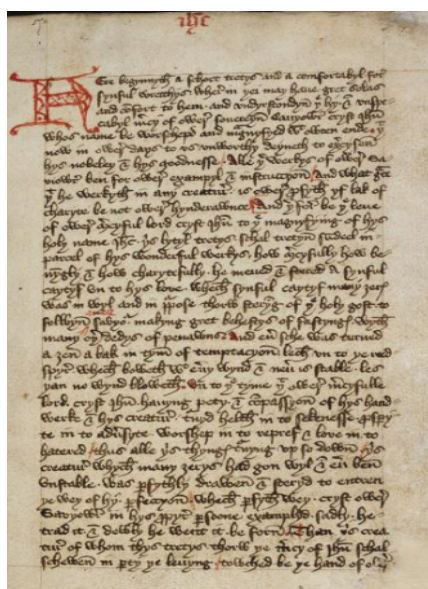 ihc
Ere begynnyth a schort tretys and a comfortabyl for
synful wrecchys wher in þei may haue gret solas
and comfort to hem and vndyrstondyn þe hy & vnspe
cabyl mcy of ower souereyn Sauyowr cryst ihu
whos name be worschepd and magnyfyed wtowten ende. þt
now in ower days to vs vnworthy deyneth to exercysen
hys nobeley & hys goodnesse. Alle þe werkys of ower Sa
viowr ben for ower exampyl & instruccyon and what gce
þt he werkyth in any creatur is ower pfyth yf lak of
charyte be not ower hynderawnce And þfor be þe leue
of ower mcyful lord cryst ihu to þe magnyfying of hys
holy name ihc þis lytyl tretys schal tretyn sumdeel in
parcel of hys wonderful werkys. how mcyfully how be
nyngly & how charytefully he meued & stered a synful
caytyf vn to hys love. whech synful caytyf many ȝerys
was in wyl and in ppose thorw steryng of þe holy gost to
folwyn Savyor makyng gret behestys of fastyngys wyth
many oþ dedys of penawns And euer sche was turned
a ȝen a bak in tym of temptacyon lech vn to þe reed
spyr whech boweth wt euy wynd & neuer is stable les
þan no wynd bloweth vn to þe tyme þt ower mcyfulle
lord cryst ihu hauyng pety & compassyon of hys hand
werke & hys creatur turnyd helth in to sekenesse pspy
te in to aduersyte worshep in to repref & love in to
hatered thus alle þis thyngys turnyng vp so down þis
creatur whych many ȝerys had gon wyl & euer ben
vnstable was pfythly drawen & steryd to entren
þe wey of hy pfeccyon whech pfyth wey cryst ower
Savyowr in hys ppyr psoone examplyd sadly he
trad it & dewly he went it be forn Than þis crea
tur of whom thys tretys thorw þe mcy of ihu schal
schewen in pty þe leuyng towched be þe hand of ower